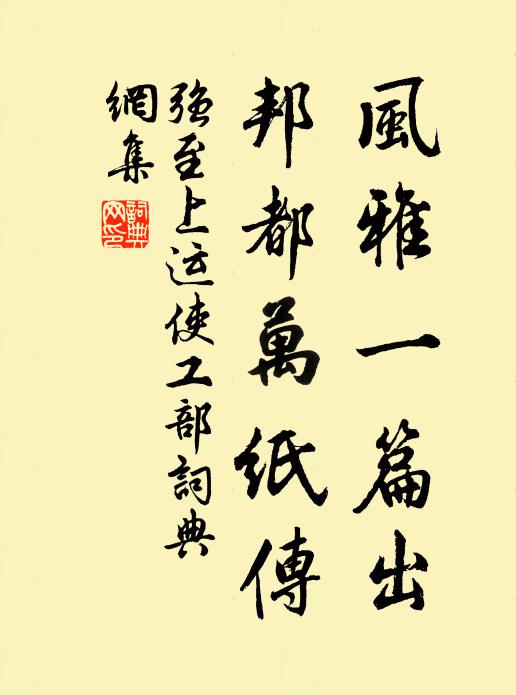 風雅一篇出
邦都萬紙傳
强至上运使工部詞典
網集
詞典
网印